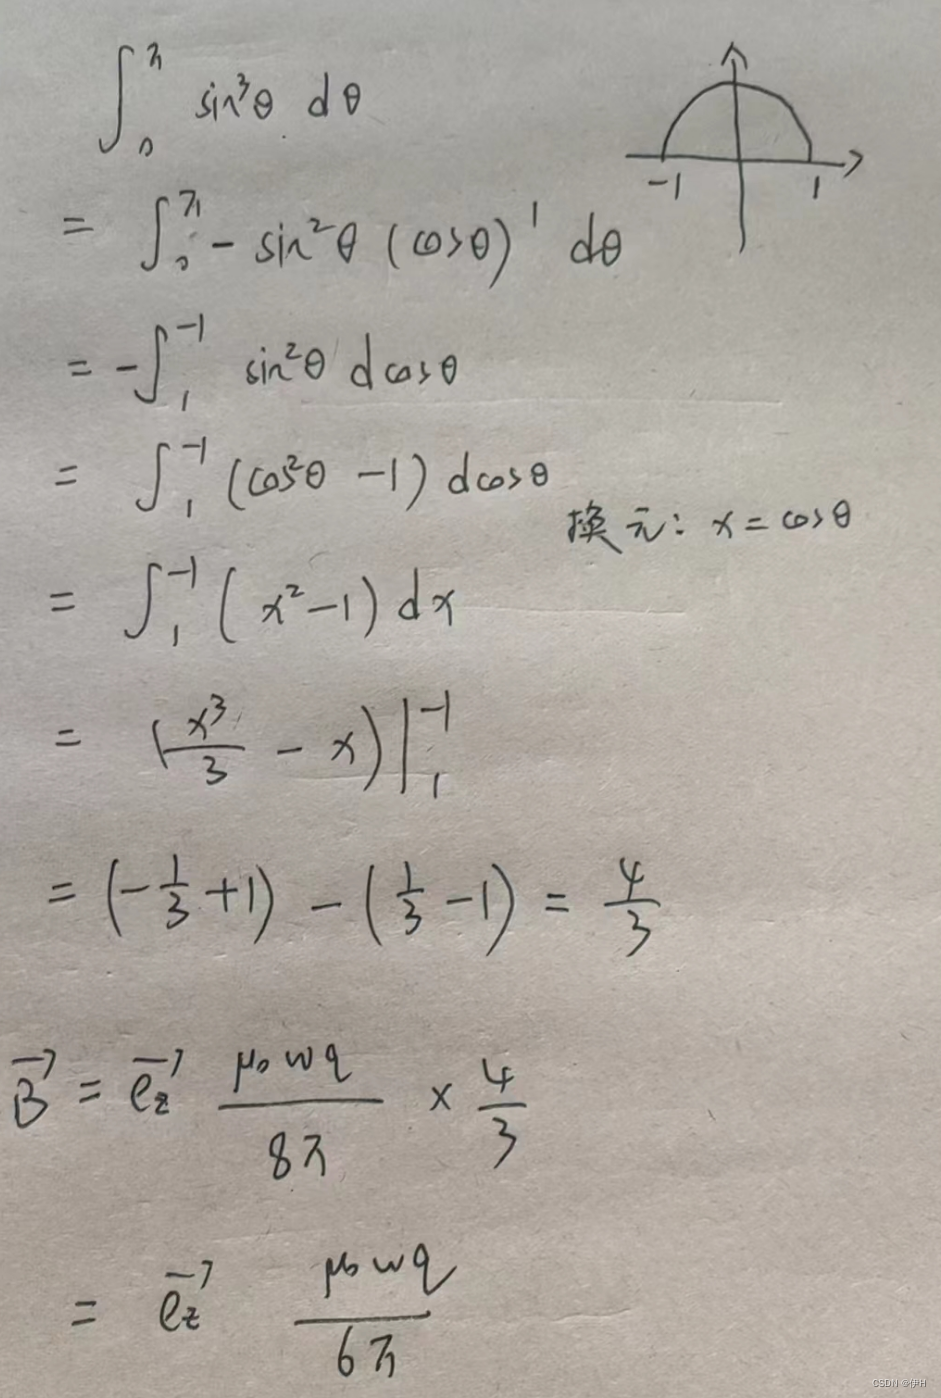 ∫₀^π sin³θ dθ
-1 1
= ∫₀^π - sin²θ (cosθ)' dθ
= -∫₁^-1 sin²θ dcosθ
= ∫₁^-1 (cos²θ -1) dcosθ
换元: x = cosθ
= ∫₁^-1 (x²-1) dx
= (x³/3 - x)|₁^-1
= (-1/3+1) - (1/3-1) = 4/3
B⃗ = e⃗z μ₀ωq/8π × 4/3
= e⃗z μ₀ωq/6π
CSDN @伊H